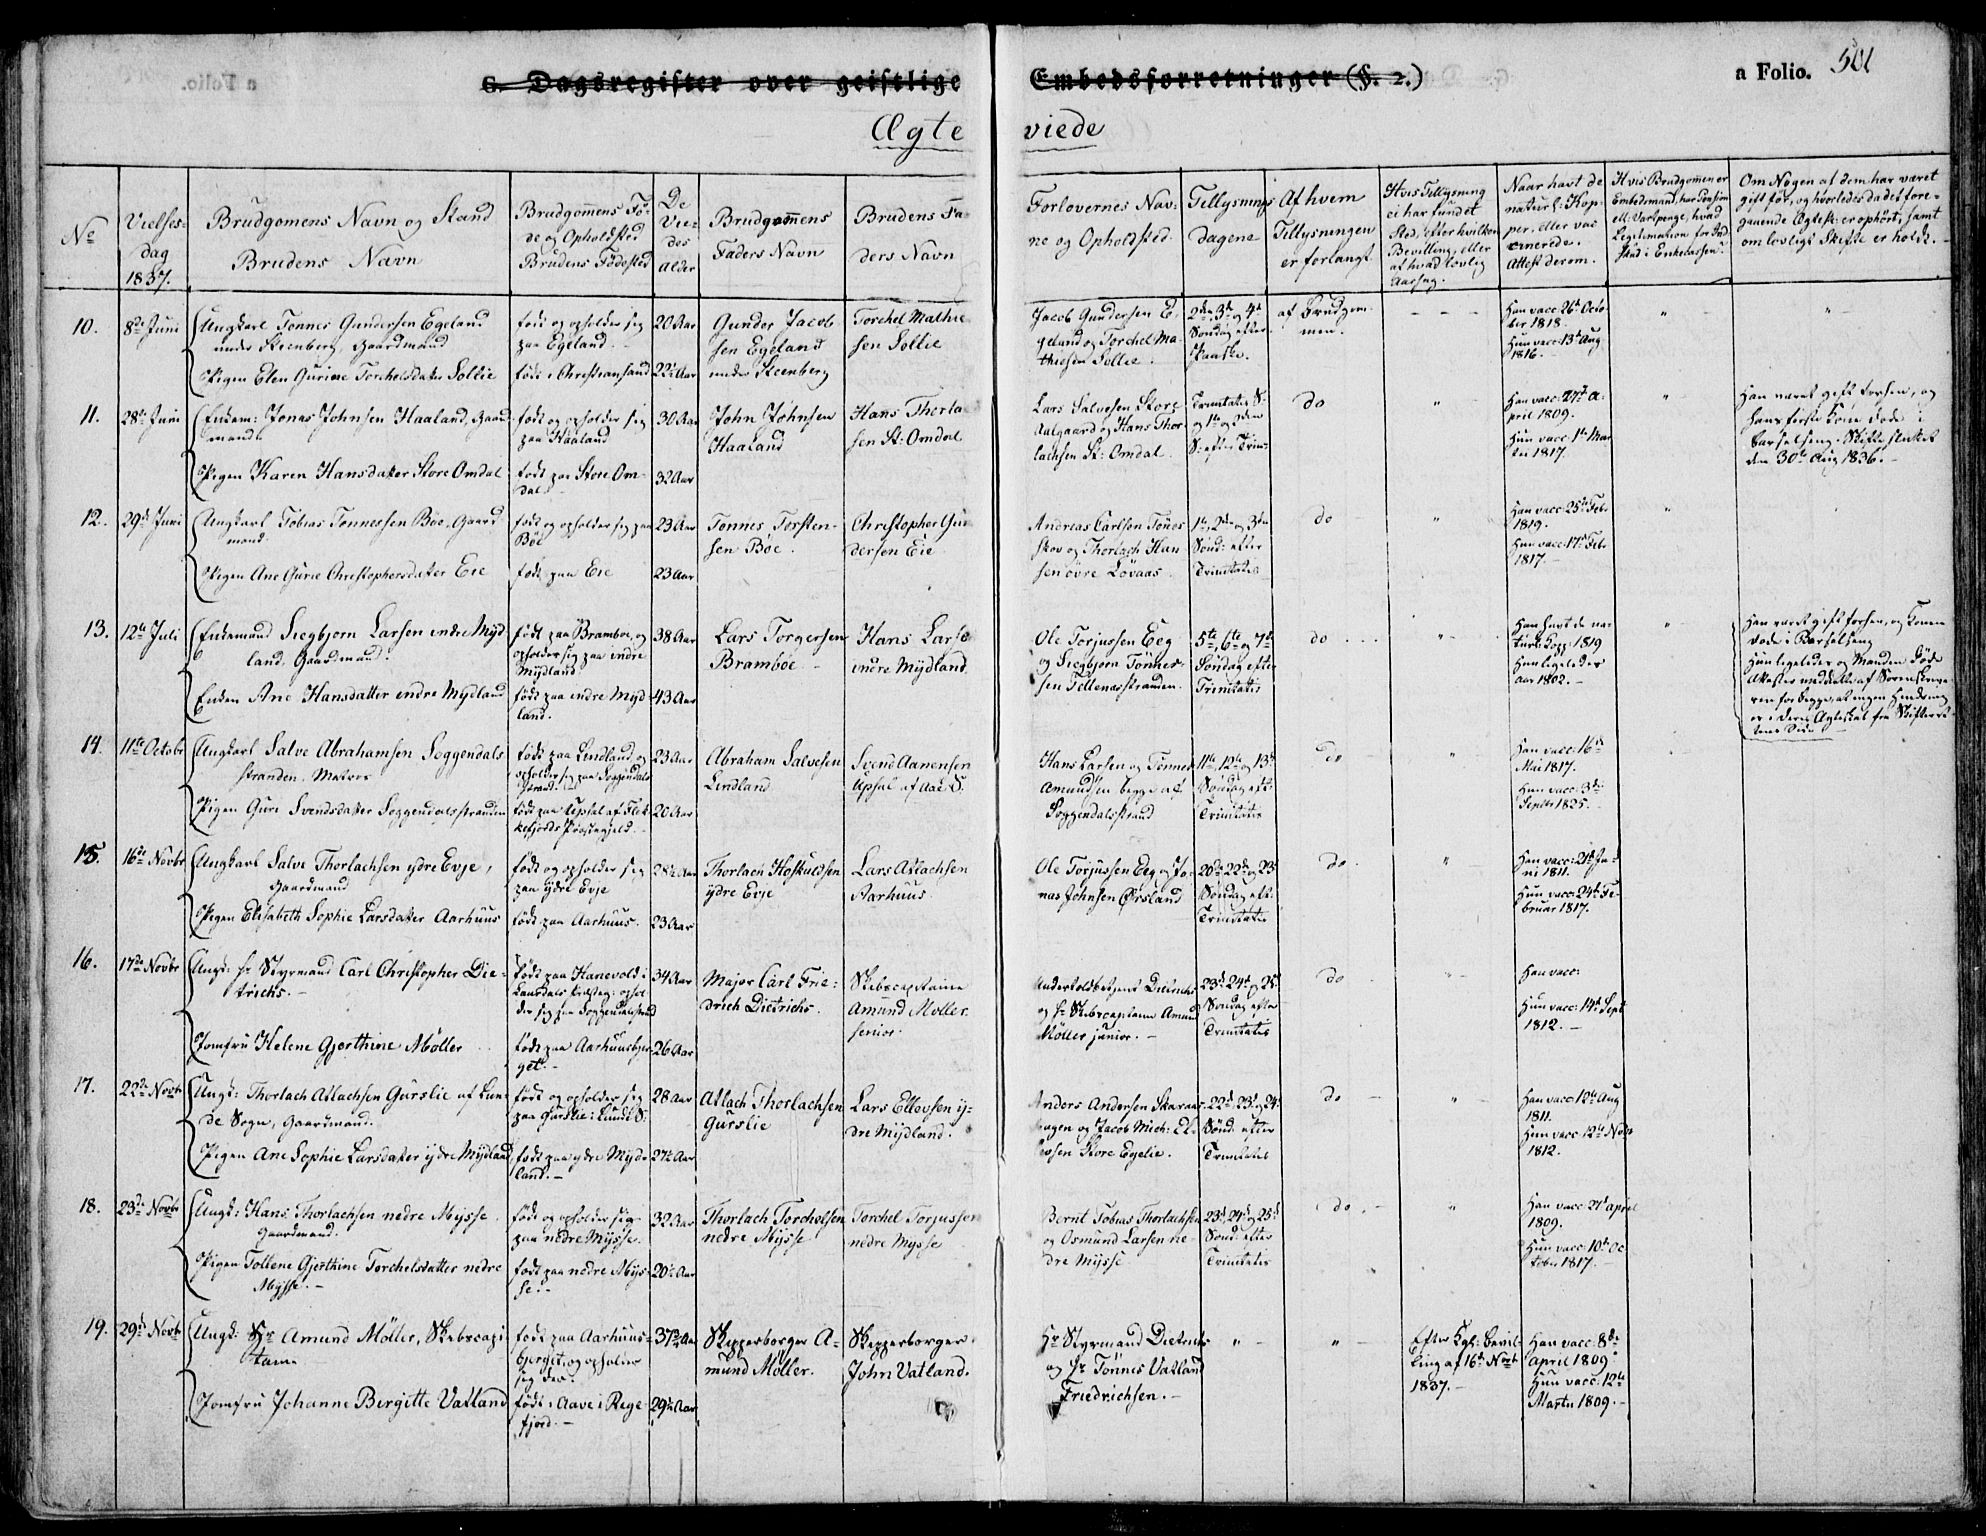 6. Dagsregister over geistlige Embedsforretninger (§. 2.)
a Folio. 501
Ægte viede
No
Vielses-
dag
1837.
Brudgomens Navn og Stand
Brudens Navn
Brudgomens Fö-
de og Opholdsted
Brudens Födested
De
Vie-
des
Alder
Brudgomens
Faders Navn
Brudens Fa-
ders Navn
Forlovernes Nav-
ne og Opholdsted.
Tillysnings
dagene
Af hvem
Tillysningen
er forlangt
Hvis Tillysning
ei har fundet
Sted, efter hvilken
Bevilling, eller
af hvad lovlig
Aarsag.
Naar havt de
naturl: Kop-
per, eller vac-
cinerede.
Attest derom.
Hvis Brudgomen er
Embedsmand, har Pension
ell: Vartpenge, hvad
Legitimation for Ind-
skud i Enkecassen.
Om Nogen af dem har været
gift för, og hvorledes da det fore-
gaaende Ægtesk: er ophört, samt
om lovligt Skifte er holdt.
10.
8de Juni
Ungkarl Tönnes Gundersen Egeland
under Steenberg, Gaardmand
Pigen Elen Gurine Torchelsdatter Sollie
född og opholder sig
paa Egeland.
född i Christiansand
20 Aar
22½ Aar
Gunder Jacob
sen Egeland
under Steenberg
Torchel Mathie
sen Sollie
Jacob Gundersen E-
geland og Torchel Ma-
thiesen Sollie.
2den, 3de og 4de
Söndag efter
Paaske.
af Brudgom-
men.
Han vacc: 26de Octo-
ber 1818.
Hun vacc: 13de Aug
1816.
11.
28de Juni
Enkem: Jonas Johnsen Haaland, Gaard-
mand
Pigen Karen Hansdatter Store Omdal
född og opholder sig
paa Haaland
född paa Store Om-
dal.
30 Aar
32 Aar
John Johnsen
Haaland
Hans Thorla-
sen St: Omdal
Lars Salvesen Store
Aalgaard og Hans Thor-
lachsen St: Omdal.
Trinitatis S:
og 1ste og 2den
S: efter Trin:
do
Han vacc: 27de A-
pril 1809.
Hun vacc: 1ste Mar-
tii 1817.
Han været gift forhen, og
hans förste Kone döde i
Barselseng. Skifte sluttet
den 30te Aug 1836.
12.
29de Juni
Ungkarl Tobias Tonnessen Böe, Gaard-
mand.
Pigen Ane Gurie Christophersdatter Eie
född og opholder sig paa
Böe
född paa Eie
23 Aar
23 Aar
Tonnes Torsten-
sen Böe.
Christopher Gun-
dersen Eie
Andreas Carlsen Tönes
skov og Thorlach Han
sen övre Lövaas.
1ste, 2den og 3den
Sönd: efter
Trinitatis
do
Han vacc: 25de Feb:
1819.
Hun vacc: 17de Feb:
1817.
13.
12te Juli
Enkemand Siegbjorn Larsen indre Myd-
land, Gaardmand.
Enken Ane Hansdatter indre Mydland
född paa Bramboe, og
opholder sig paa indre
Mydland
född paa indre Myd-
land.
38 Aar
43 Aar
Lars Torgersen
Bramböe
Hans Larse
indre Mydland
Ole Torjussen Eeg
og Siegbjorn Tönnes-
sen Tellenæsstranden.
5te, 6te og 7de
Söndag efter
Trinitatis
do
Han havt de na-
turl: Kopp: 1819
Hun ligeledes
Aar 1802.
Han været gift forhen, og Konen
döde i Barselseng
Hun ligeledes og Manden döde
Attester meddeelte af Sorenskrive-
ren for begge, at ingen Hindring
er i deres Ægteskab fra Skifteret-
tens Side
14.
11te Octobr
Ungkarl Salve Abrahamsen Soggendals
stranden, Matros
Pigen Guri Svendsdatter Soggendalsstranden
född paa Lindland, og
opholder sig paa Soggendals
Strand.
född paa Upsal af Flek-
kefjords Præstegjeld.
23 Aar
20 Aar
Abraham Salvesen
Lindland
Svend Aanensen
Upsal af Aae S:
Hans Larsen og Tönnes
Amundsen begge af
Soggendalsstrand
11te, 12te og 13de
Söndag eft:
Trinitatis
do
Han vacc: 16de
Mai 1817.
Hun vacc: 3de
Septbr 1825.
15.
16de Novbr
Ungkarl Salve Thorlachsen ydre Evje,
Gaardmand
Pigen Elisabeth Sophie Larsdatter Aarhuus
född og opholder sig
paa ydre Evje
född paa Aarhuus.
28½ Aar
23 Aar
Thorlach Hoskuldsen
ydre Evje
Lars Atlachsen
Aarhuus
Ole Torjussen Eeg og Jo-
nas Johnsen Örsland
20de 22de og 23de
Söndag eft:
Trinitatis
do
Han vacc: 21de Ju-
ni 1811.
Hun vacc: 24de Fe-
bruar 1817.
16.
17de Novbr
Ungk: Hr Styrmand Carl Christopher Die-
trichs.
Jomfru Helene Gjerthine Möller
född paa Hanevold i
Laurdals Præsteg: ophol-
der sig paa Soggendalsstrand
född paa Aarhuusbjer-
get.
34 Aar
26 Aar
Major Carl Frie-
drich Dietrichs.
Skibscaptaine
Amund Moller
senior.
Underholdbetjent Dietrichs
og Hr Skibscaptaine Amund
Möller junior.
23de 24de og 25de
Söndag efter
Trinitatis
do
Han vacc:
Hun vacc: 14de Sept
1812.
17.
22de Novbr
Ungk: Thorlach Atlachsen Gurslie af Lun-
de Sogn, Gaardmand.
Pigen Ane Sophie Larsdatter ydre Mydland
född og opholder sig
paa Gurslie i Lunde S:
född paa ydre Myd-
land.
28 Aar
27½ Aar
Atlach Thorlachsen
Gurslie
Lars Ellevsen y-
dre Mydland.
Anders Andersen Skaraas-
hagen og Jacob Mich: El-
levsen Store Egelie.
22de 23de og 24de
Sönd: efter
Trinitatis
do
Han vacc: 12te Aug
1811.
Hun vacc: 12te Novbr
1812.
18.
23de Novbr
Ungk: Hans Thorlachsen nedre Mysse
Gaardmand.
Pigen Tollene Gjerthine Torchelsdatter nedre
Mysse.
född og opholder sig
paa nedre Mysse.
född paa nedre Mys-
se.
32 Aar
20½ Aar
Thorlach Torchelsen
nedre Mysse
Torchel Torjussen
nedre Mysse
Bernt Tobias Thorlachsen
og Osmund Larsen ne-
dre Mysse
23de, 24de og 25de
Sönd: efter
Trinitatis
do
Han vacc: 21de april
1809.
Hun vacc: 10de Oc-
tober 1817.
19.
29de Novbr
Ungk: Hr Amund Möller, Skibscapi-
taine
Jomfru Johanne Bergitte Vatland
född paa Aarhuus-
bjerget, og opholder
sig der.
född i Aave i Rege-
fjord.
37½ Aar
29½ Aar
Skipperborger A-
mund Möller.
Skipperborger
John Vatland.
Hr Styrmand Dietrichs
og Hr Tönnes Vatland
Friedrichsen.
Efter Kgl: Bevil-
ling af 16de Novbr
1837.
Han vacc: 8de
April 1809.
Hun vacc: 12te
Martii 1809.